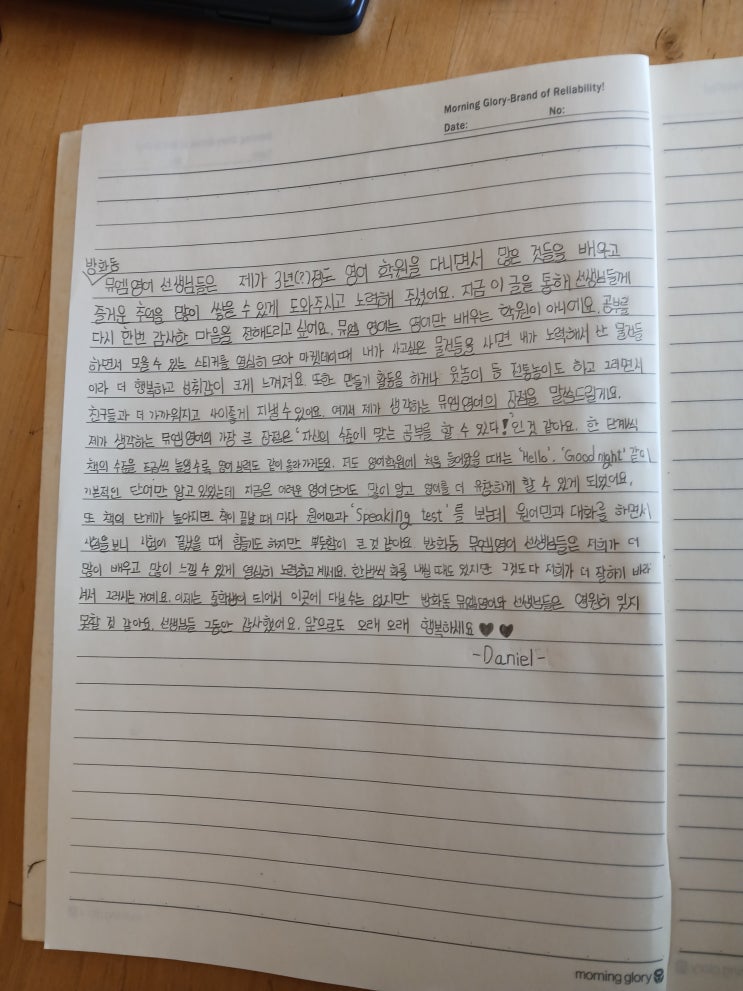 Morning Glory-Brand of Reliability!
Date: No:
방화동
뮤엠영어 선생님들은 제가 3년(?)정도 영어 학원을 다니면서 많은 것들을 배우고
즐거운 추억을 많이 쌓을 수 있게 도와주시고 노력해 주셨어요. 지금 이 글을 통해 선생님들께
다시 한번 감사한 마음을 전해드리고 싶어요. 뮤엠 영어는 영어만 배우는 학원이 아니에요. 공부를
하면서 모을 수 있는 스티커를 열심히 모아 마켓데이때 내가 사고싶은 물건들을 사면 내가 노력해서 산 물건들
이라 더 행복하고 성취감이 크게 느껴져요. 또한 만들기 활동을 하거나 윷놀이 등 전통놀이도 하고 그러면서
친구들과 더 가까워지고 사이좋게 지낼 수 있어요. 여기서 제가 생각하는 뮤엠영어의 장점을 말씀드릴게요.
제가 생각하는 뮤엠영어의 가장 큰 장점은 '자신의 수준에 맞는 공부를 할 수 있다!'인 것 같아요. 한 단계씩
책의 수준을 조금씩 높일수록 영어 실력도 같이 올라가거든요. 저도 영어학원에 처음 들어왔을 때는 'Hello', 'Good night' 같이
기본적인 단어만 알고 있었는데 지금은 어려운 영어 단어도 많이 알고 영어를 더 유창하게 할 수 있게 되었어요.
또 책의 단계가 높아지면 책이 끝날 때 마다 원어민과 'Speaking test'를 보는데 원어민과 대화를 하면서
시험을 보니 시험이 끝났을 때 힘들기도 하지만 뿌듯함이 큰 것 같아요. 방화동 뮤엠영어 선생님들은 저희가 더
많이 배우고 많이 느낄 수 있게 열심히 노력하고 계세요. 한번씩 화를 내실 때도 있지만 그것도 다 저희가 더 잘하기 바라
셔서 그러시는 거예요. 이제는 중학생이 되어서 이곳에 다닐 수는 없지만 방화동 뮤엠영어와 선생님들은 영원히 잊지
못할 것 같아요. 선생님들 그동안 감사했어요. 앞으로도 오래 오래 행복하세요 ♥ ♥
-Daniel-
morning glory